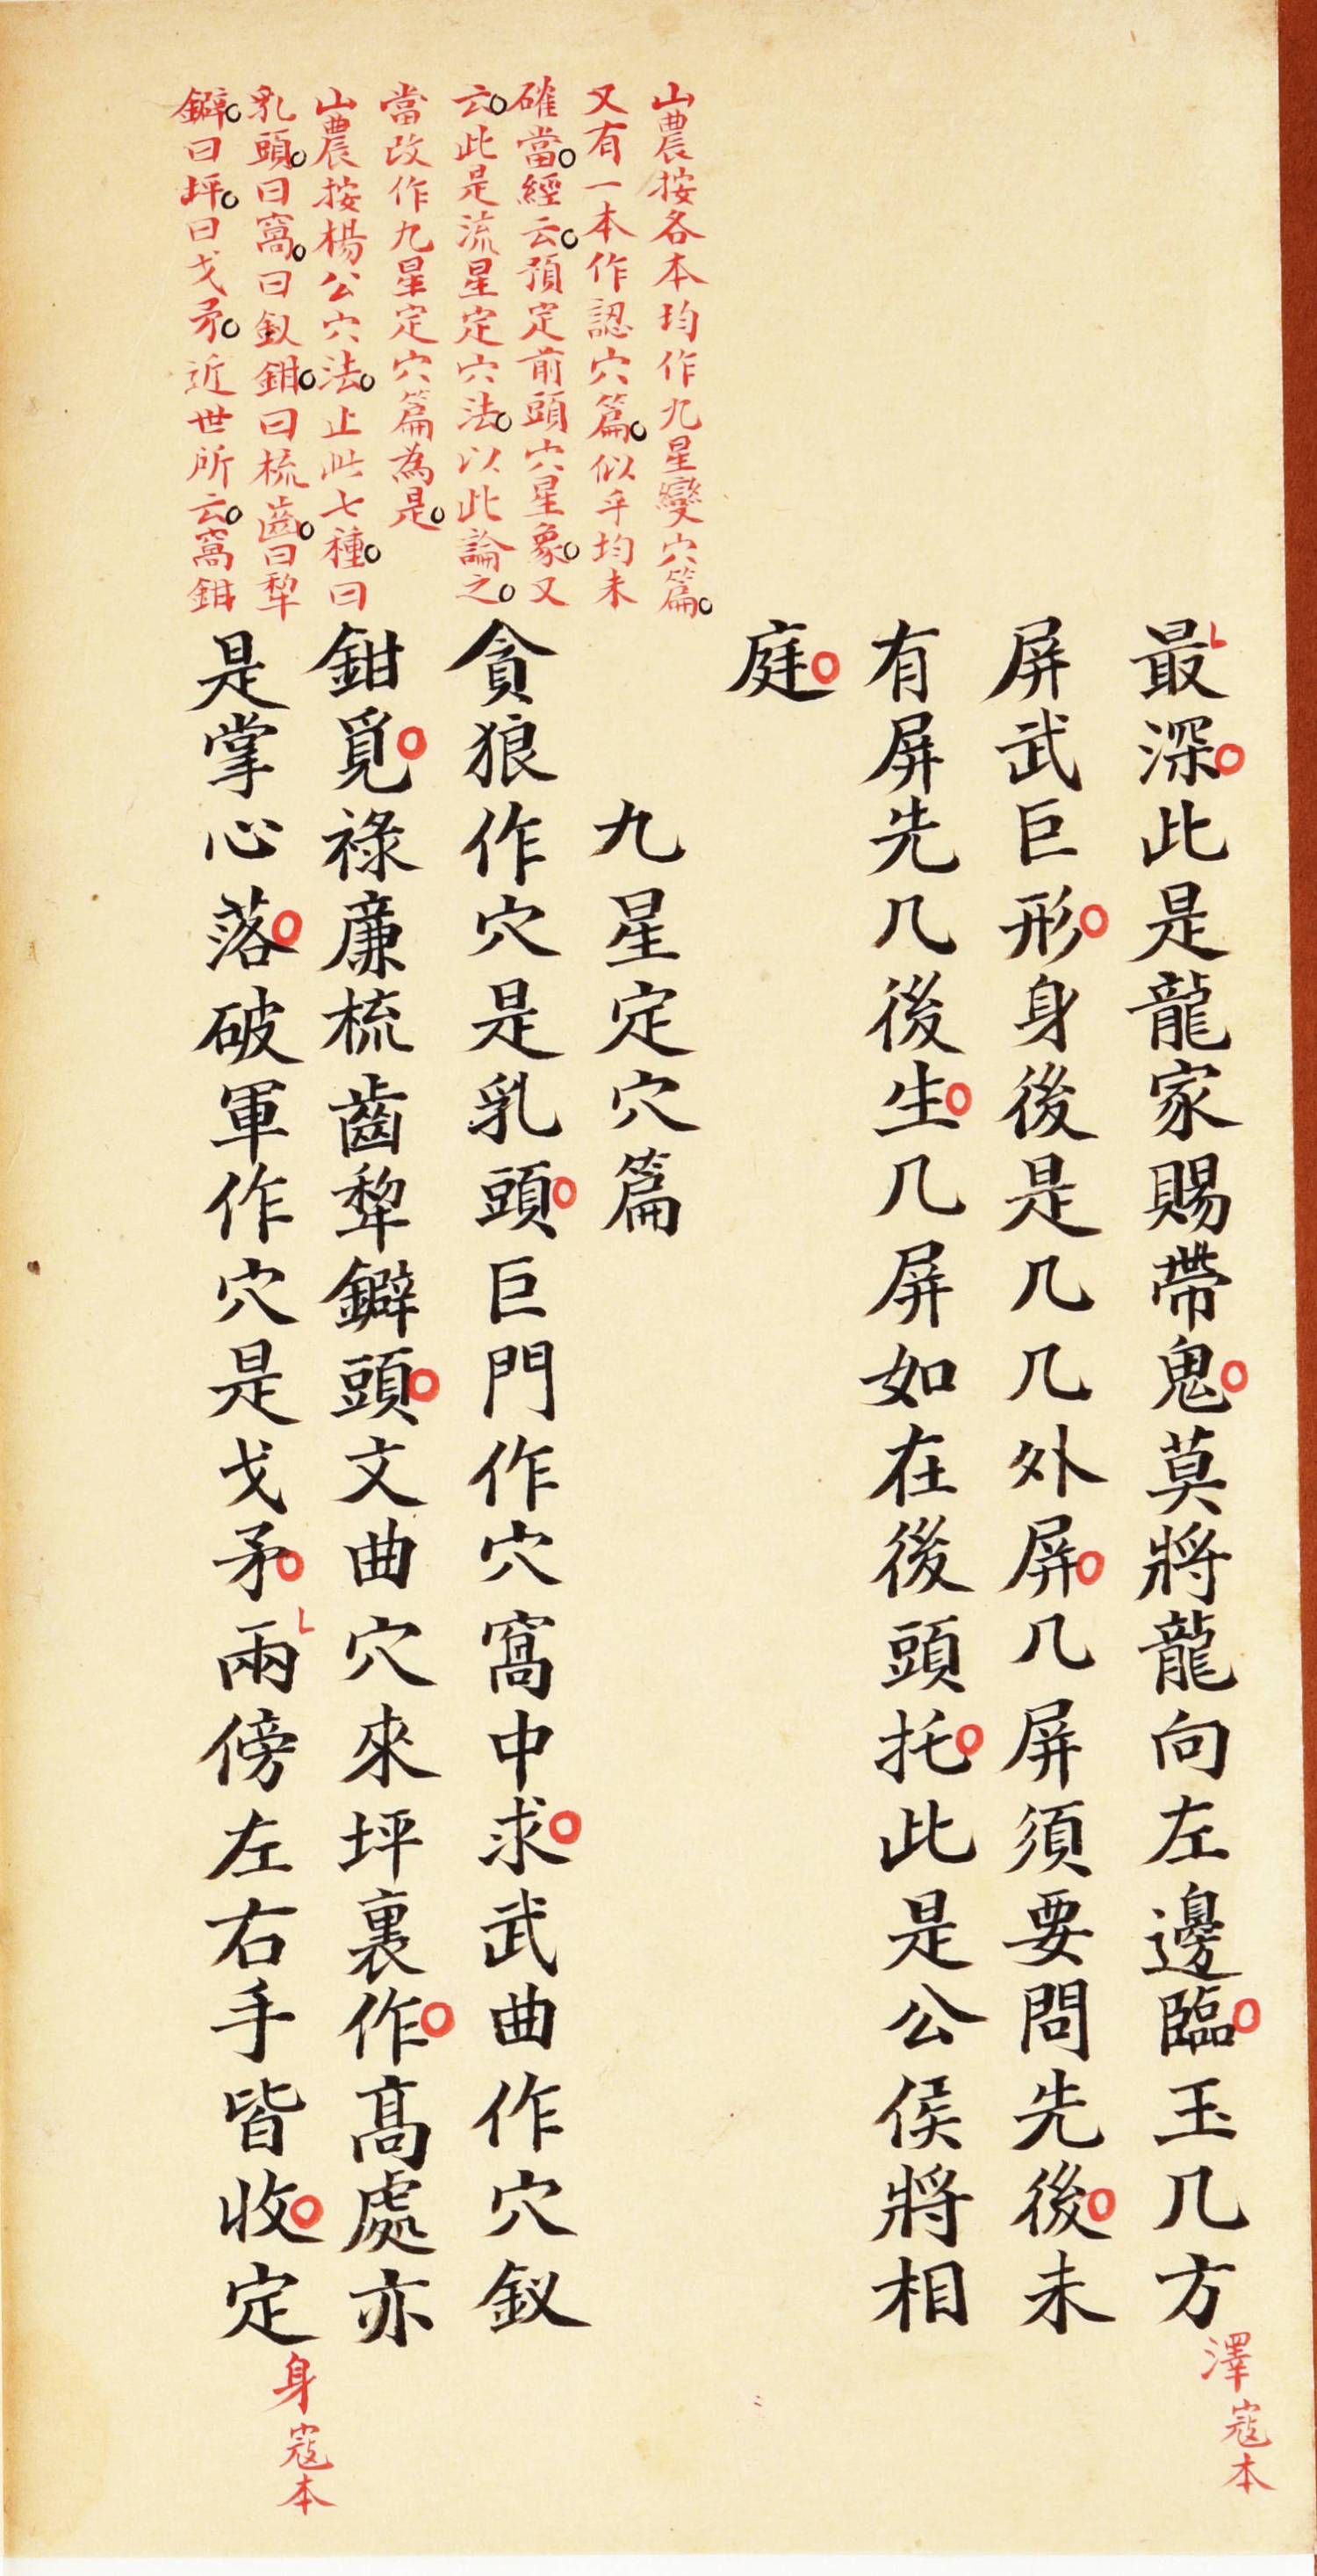 最深此是龍家賜帶鬼莫將龍向左邊臨玉几方
澤
寇本
屏武巨形身後是几几外屏几屏須要問先後未
有屏先几後生几屏如在後頭托此是公侯將相
庭
九星定穴篇
貪狼作穴是乳頭巨門作穴窩中求武曲作穴釵
鉗覓祿廉梳齒犂鐴頭文曲穴來坪裏作高處亦
是掌心落破軍作穴是戈矛兩傍左右手皆收定
身
寇本
山農按各本均作九星變穴篇
又有一本作認穴篇似乎均未
確當經云預定前頭穴星象又
云此是流星定穴法以此論之
當改作九星定穴篇為是
山農按楊公穴法止此七種曰
乳頭曰窩曰釵鉗曰梳齒曰犂
鐴曰坪曰戈矛近世所云窩鉗